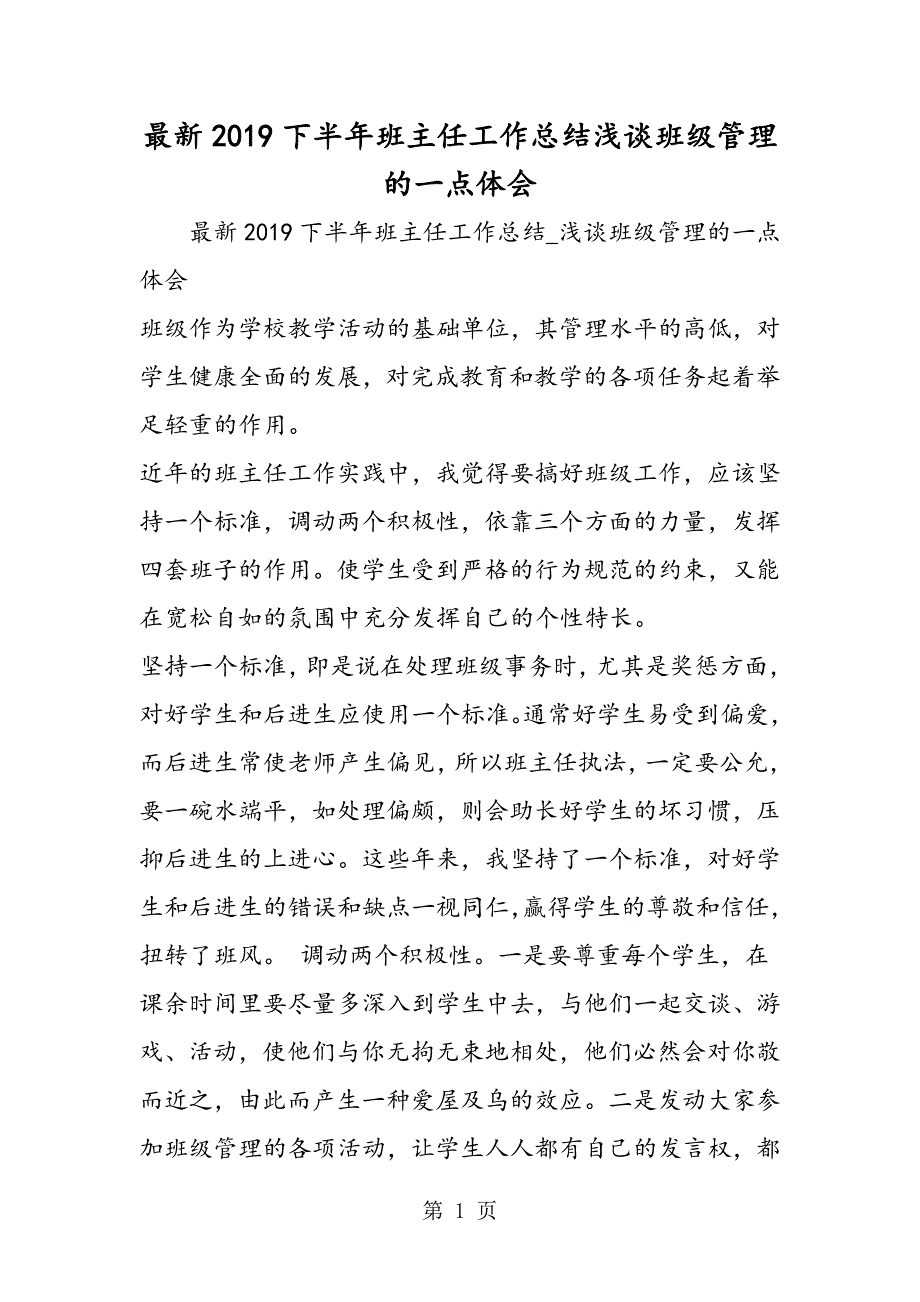 最新2019下半年班主任工作总结浅谈班级管理
的一点体会
最新2019下半年班主任工作总结_浅谈班级管理的一点
体会
班级作为学校教学活动的基础单位，其管理水平的高低，对
学生健康全面的发展，对完成教育和教学的各项任务起着举
足轻重的作用。
近年的班主任工作实践中，我觉得要搞好班级工作，应该坚
持一个标准，调动两个积极性，依靠三个方面的力量，发挥
四套班子的作用。使学生受到严格的行为规范的约束，又能
在宽松自如的氛围中充分发挥自己的个性特长。
坚持一个标准，即是说在处理班级事务时，尤其是奖惩方面，
对好学生和后进生应使用一个标准。通常好学生易受到偏爱，
而后进生常使老师产生偏见，所以班主任执法，一定要公允，
要一碗水端平，如处理偏颇，则会助长好学生的坏习惯，压
抑后进生的上进心。这些年来，我坚持了一个标准，对好学
生和后进生的错误和缺点一视同仁，赢得学生的尊敬和信任，
扭转了班风。 调动两个积极性。一是要尊重每个学生，在
课余时间里要尽量多深入到学生中去，与他们一起交谈、游
戏、活动，使他们与你无拘无束地相处，他们必然会对你敬
而近之，由此而产生一种爱屋及乌的效应。二是发动大家参
加班级管理的各项活动，让学生人人都有自己的发言权，都
第 1 页